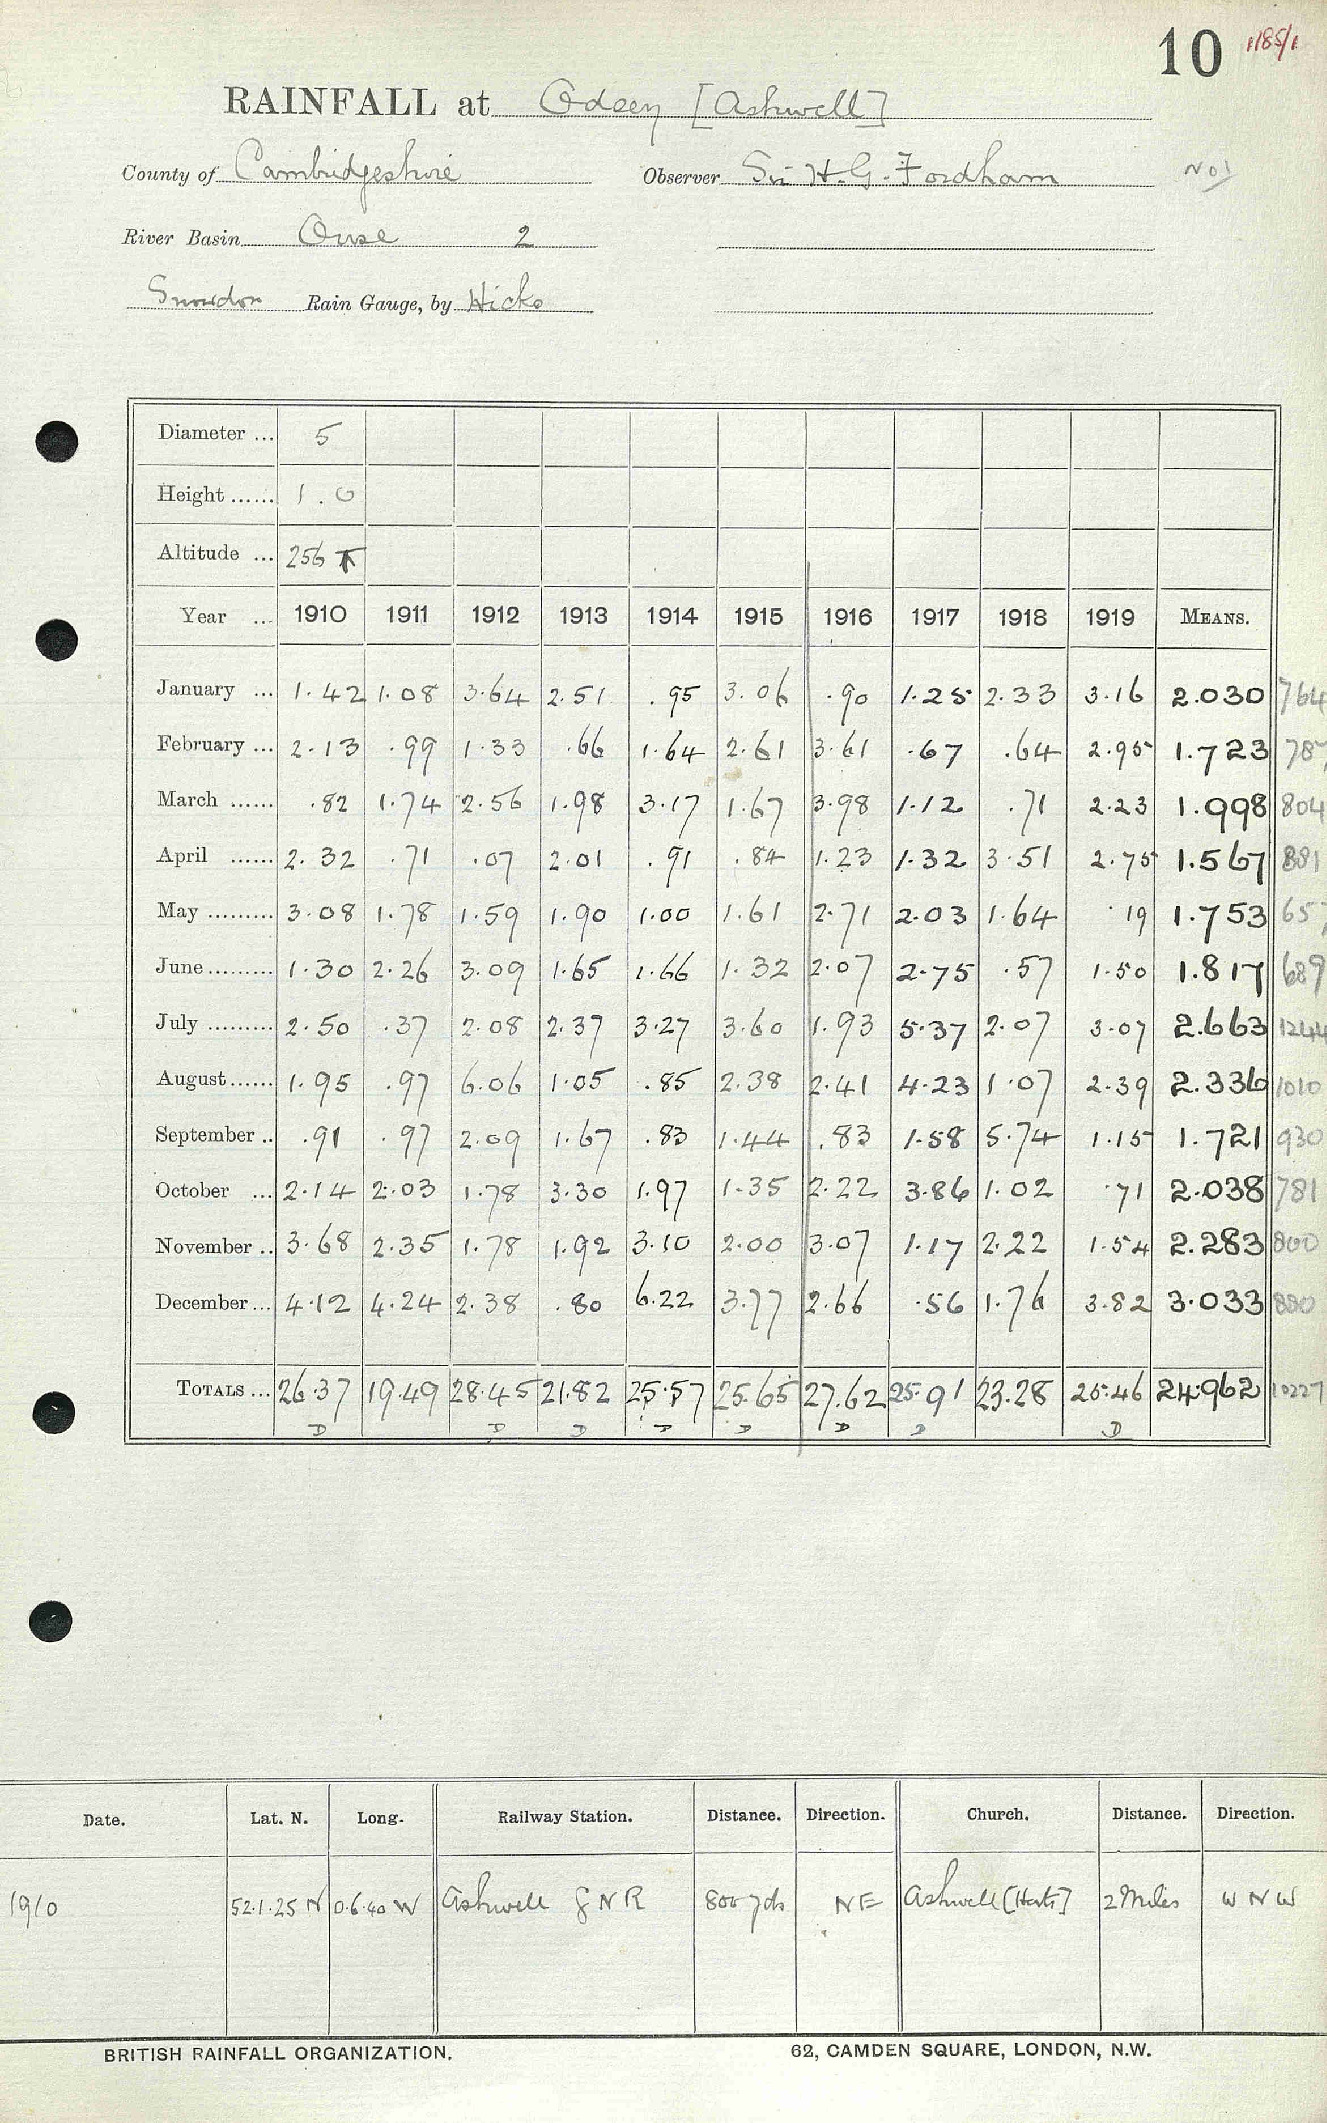 10 1185/1
RAINFALL at Odsey [Ashwell]
County of Cambridgeshire Observer Sir H. G. Fordham No 1
River Basin Ouse 2
Snowdon Rain Gauge, by Hicks
Diameter ... 5
Height ...... 1.0
Altitude ... 256 T
Year ... 1910 1911 1912 1913 1914 1915 1916 1917 1918 1919 MEANS.
January ... 1.42 1.08 3.64 2.51 .95 3.06 .90 1.25 2.33 3.16 2.030 764
February ... 2.13 .99 1.33 .66 1.64 2.61 3.61 .67 .64 2.95 1.723 787
March ...... .82 1.74 2.56 1.98 3.17 1.67 3.98 1.12 .71 2.23 1.998 804
April ...... 2.32 .71 .07 2.01 .91 .84 1.23 1.32 3.51 2.75 1.567 881
May ......... 3.08 1.78 1.59 1.90 1.00 1.61 2.71 2.03 1.64 .19 1.753 657
June ......... 1.30 2.26 3.09 1.65 1.66 1.32 2.07 2.75 .57 1.50 1.817 689
July ......... 2.50 .37 2.08 2.37 3.27 3.60 1.93 5.37 2.07 3.07 2.663 1244
August ...... 1.95 .97 6.06 1.05 .85 2.38 2.41 4.23 1.07 2.39 2.336 1010
September .. .91 .97 2.09 1.67 .83 1.44 .83 1.58 5.74 1.15 1.721 930
October ... 2.14 2.03 1.78 3.30 1.97 1.35 2.22 3.86 1.02 .71 2.038 781
November .. 3.68 2.35 1.78 1.92 3.10 2.00 3.07 1.17 2.22 1.54 2.283 800
December ... 4.12 4.24 2.38 .80 6.22 3.77 2.66 .56 1.76 3.82 3.033 880
TOTALS ... 26.37 19.49 28.45 21.82 25.57 25.65 27.62 25.91 23.28 25.46 24.962 10227
D D D D D D D D
Date. Lat. N. Long. Railway Station. Distance. Direction. Church. Distance. Direction.
1910 52.1.25 N 0.6.40 W Ashwell G N R 800 yds NE Ashwell [Herts] 2 Miles W N W
BRITISH RAINFALL ORGANIZATION. 62, CAMDEN SQUARE, LONDON, N.W.